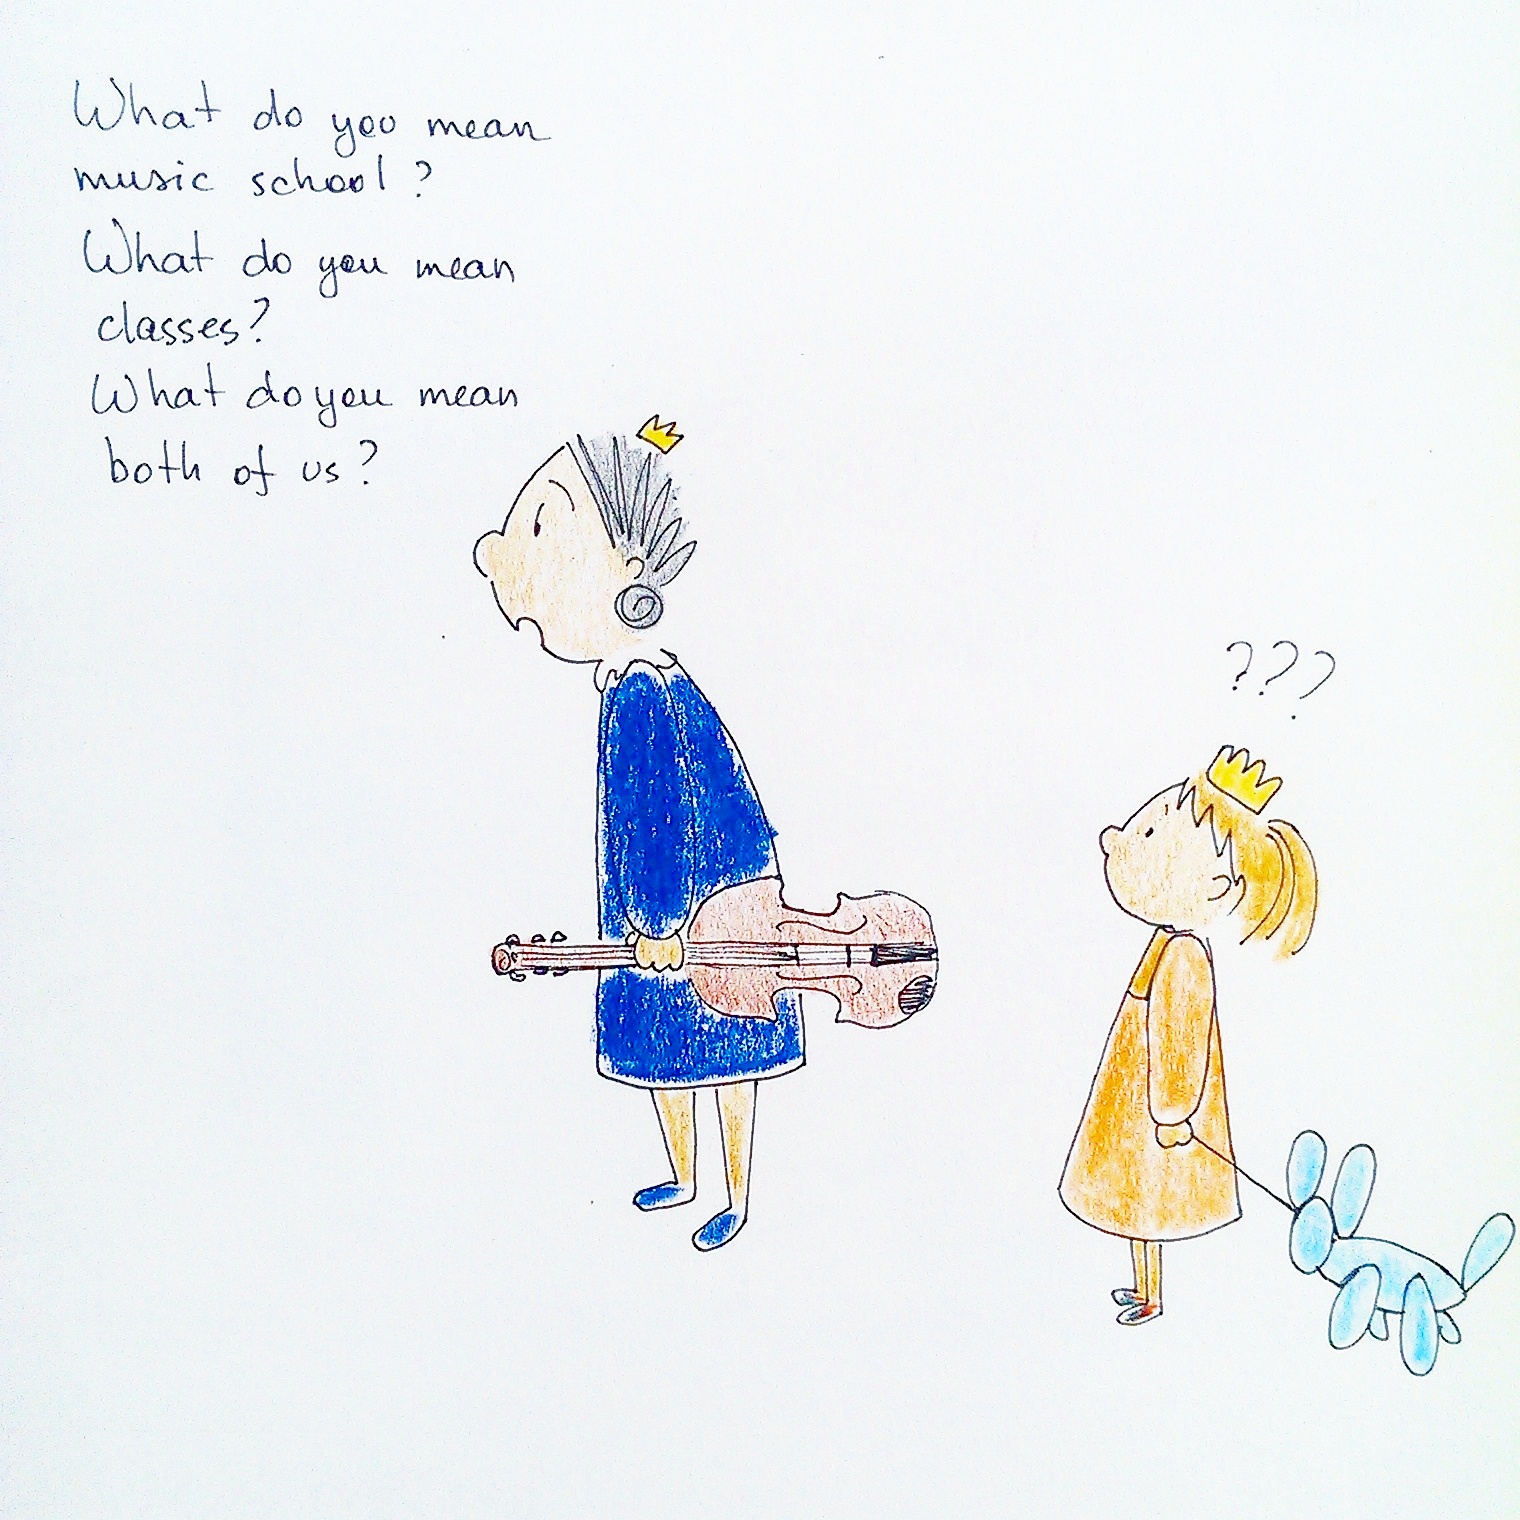 What do you mean
music school?
What do you mean
classes?
What do you mean
both of us?
???